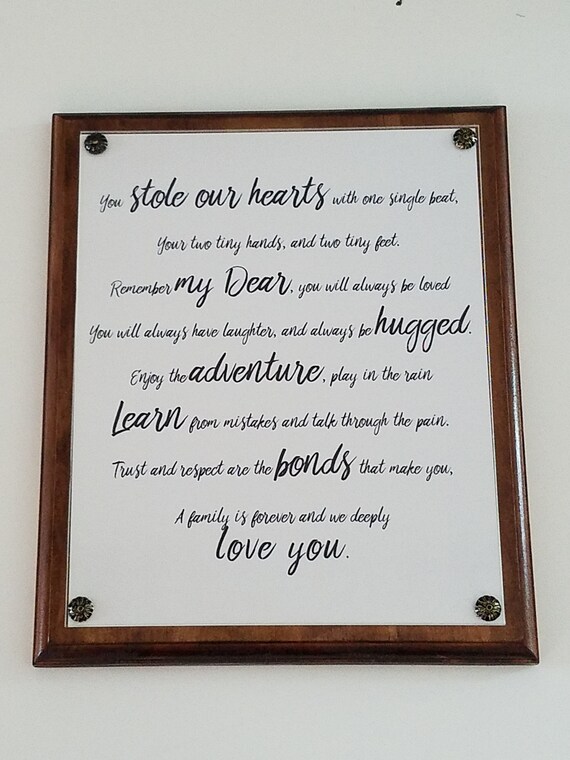 You stole our hearts with one single beat,
Your two tiny hands, and two tiny feet.
Remember my Dear, you will always be loved
You will always have laughter, and always be hugged.
Enjoy the adventure, play in the rain
Learn from mistakes and talk through the pain.
Trust and respect are the bonds that make you,
A family is forever and we deeply
love you.